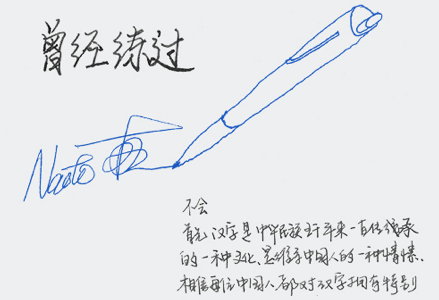 曾经练过
不会
首先汉字是中华民族五千年来一直传承
的一种文化,是维系中国人的一种情愫,
相信每位中国人都对汉字拥有特别